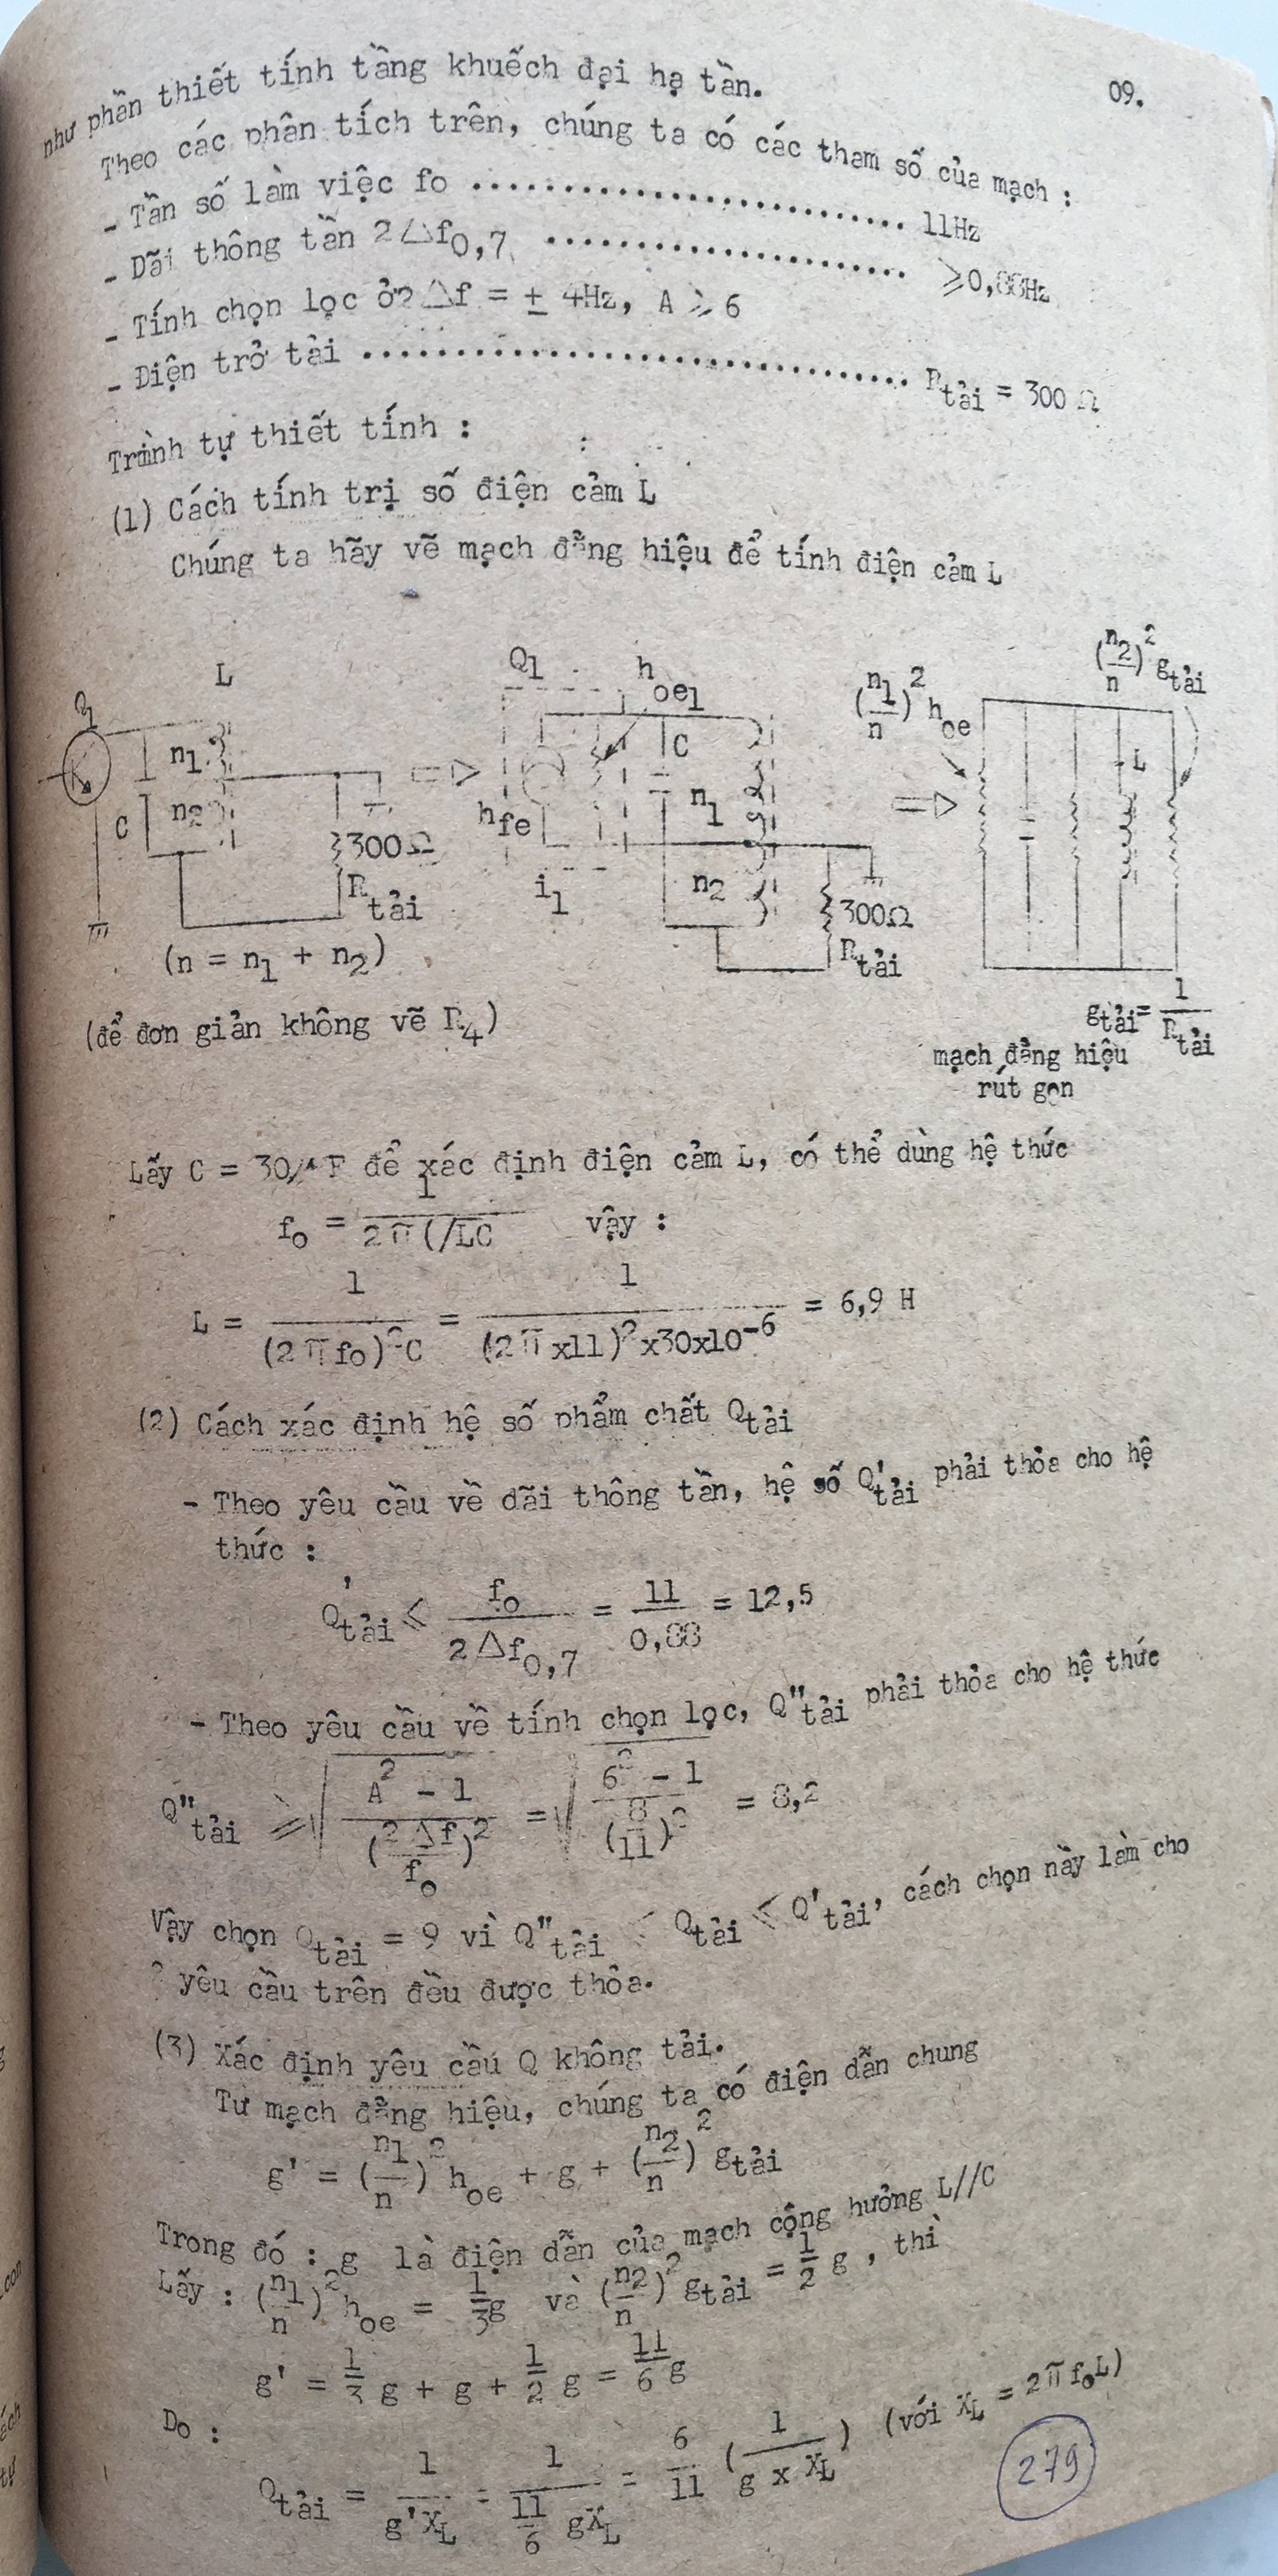 09.
như phần thiết tính tầng khuếch đại hạ tần.
Theo các phân tích trên, chúng ta có các tham số của mạch :
- Tần số làm việc fo .............................. 11Hz
- Dãi thông tần 2△f0,7 ......................... ⩾0,88Hz
- Tính chọn lọc ở 2△f = ± 4Hz, A ⩾ 6
- Điện trở tải .................................... Rtải = 300 Ω
Trình tự thiết tính :
(1) Cách tính trị số điện cảm L
Chúng ta hãy vẽ mạch đẳng hiệu để tính điện cảm L
L
Q1
n1
n2
C
300Ω
Rtải
(n = n1 + n2)
(để đơn giản không vẽ R4)
Q1
hoe1
C
n1
hfe
n2
i1
300Ω
Rtải
(n1/n)² hoe
(n2/n)² gtải
L
gtải = 1/Rtải
mạch đẳng hiệu
rút gọn
Lấy C = 30μF để xác định điện cảm L, có thể dùng hệ thức
fo = 1/(2π√LC) vậy :
L = 1/((2πfo)²C) = 1/((2πx11)²x30x10⁻⁶) = 6,9 H
(2) Cách xác định hệ số phẩm chất Qtải
- Theo yêu cầu về dãi thông tần, hệ số Q'tải phải thỏa cho hệ
thức :
Q'tải ⩽ fo/(2△f0,7) = 11/0,88 = 12,5
- Theo yêu cầu về tính chọn lọc, Q"tải phải thỏa cho hệ thức
Q"tải ⩾ √((A² - 1)/(2△f/fo)²) = √((6² - 1)/(8/11)²) = 8,2
Vậy chọn Qtải = 9 vì Q"tải < Qtải ⩽ Q'tải, cách chọn này làm cho
2 yêu cầu trên đều được thỏa.
(3) Xác định yêu cầu Q không tải.
Từ mạch đẳng hiệu, chúng ta có điện dẫn chung
g' = (n1/n)² hoe + g + (n2/n)² gtải
Trong đó : g là điện dẫn của mạch cộng hưởng L//C
Lấy : (n1/n)² hoe = 1/3 g và (n2/n)² gtải = 1/2 g , thì
g' = 1/3 g + g + 1/2 g = 11/6 g
Do :
Qtải = 1/(g'XL) = 1/(11/6 gXL) = 6/11 (1/(g x XL)) (với XL = 2πfoL)
279